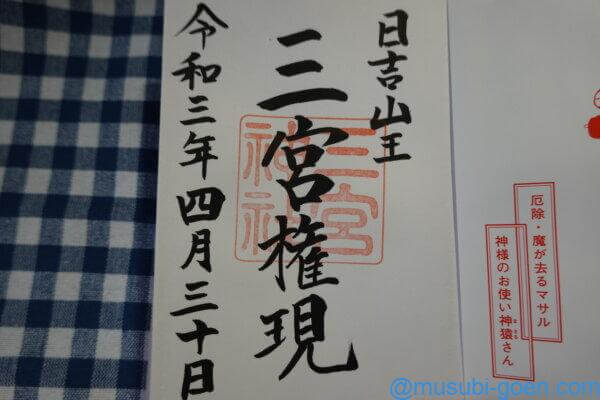 日吉山王
三宮権現
令和三年四月三十日
三宮
神社
厄除・魔が去るマサル
神様のお使い神猿さん
まさる
@musubi-goen.com